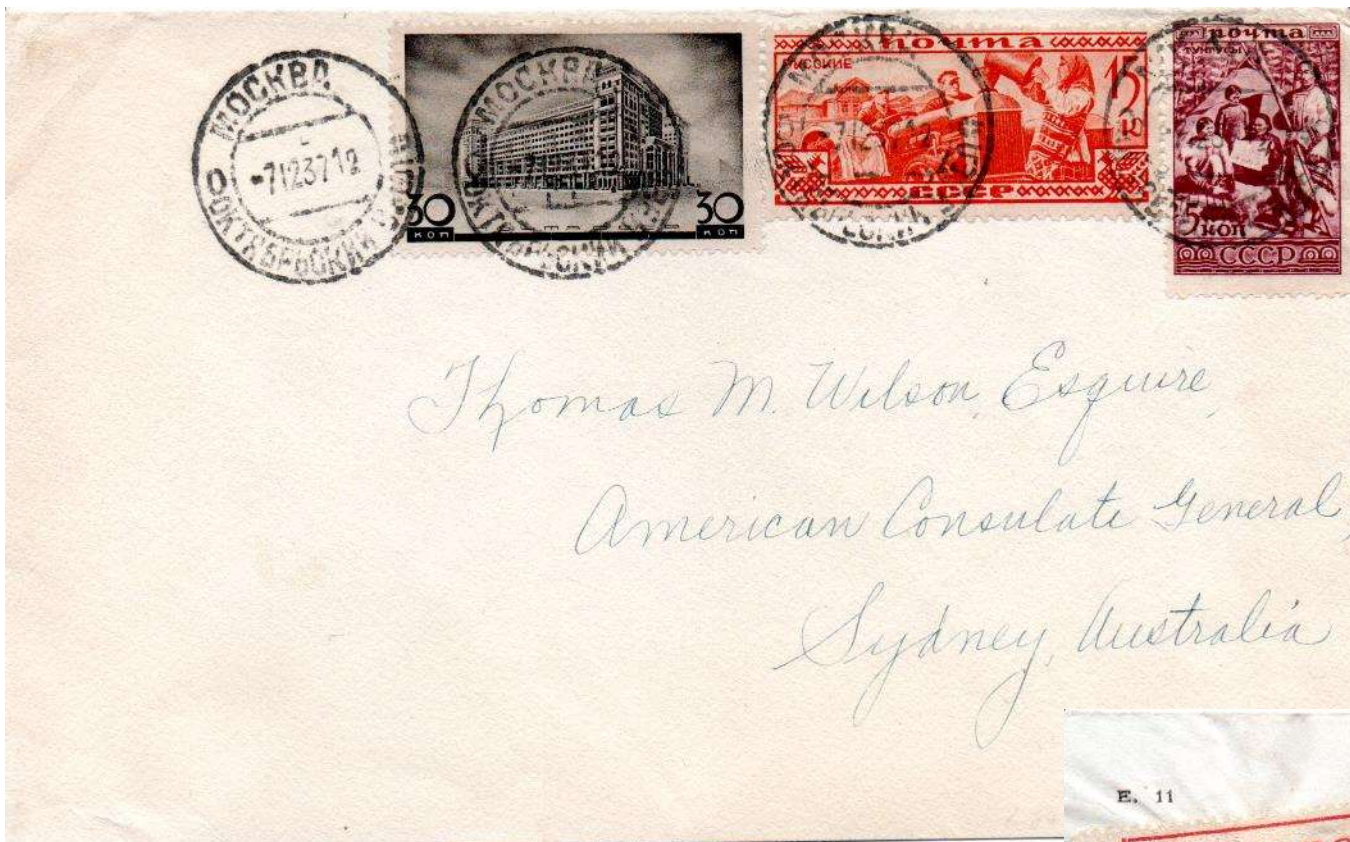 МОСКВА
-7.12.37.12
ОКТЯБРЬСКИЙ
МОСКВА
ОКТЯБРЬСКИЙ
30 коп
30 коп
почта
РУССКИЕ
15
СССР
почта
ТУНГУСЫ
5 коп
СССР
Thomas M. Wilson, Esquire,
American Consulate General,
Sydney, Australia
E. 11